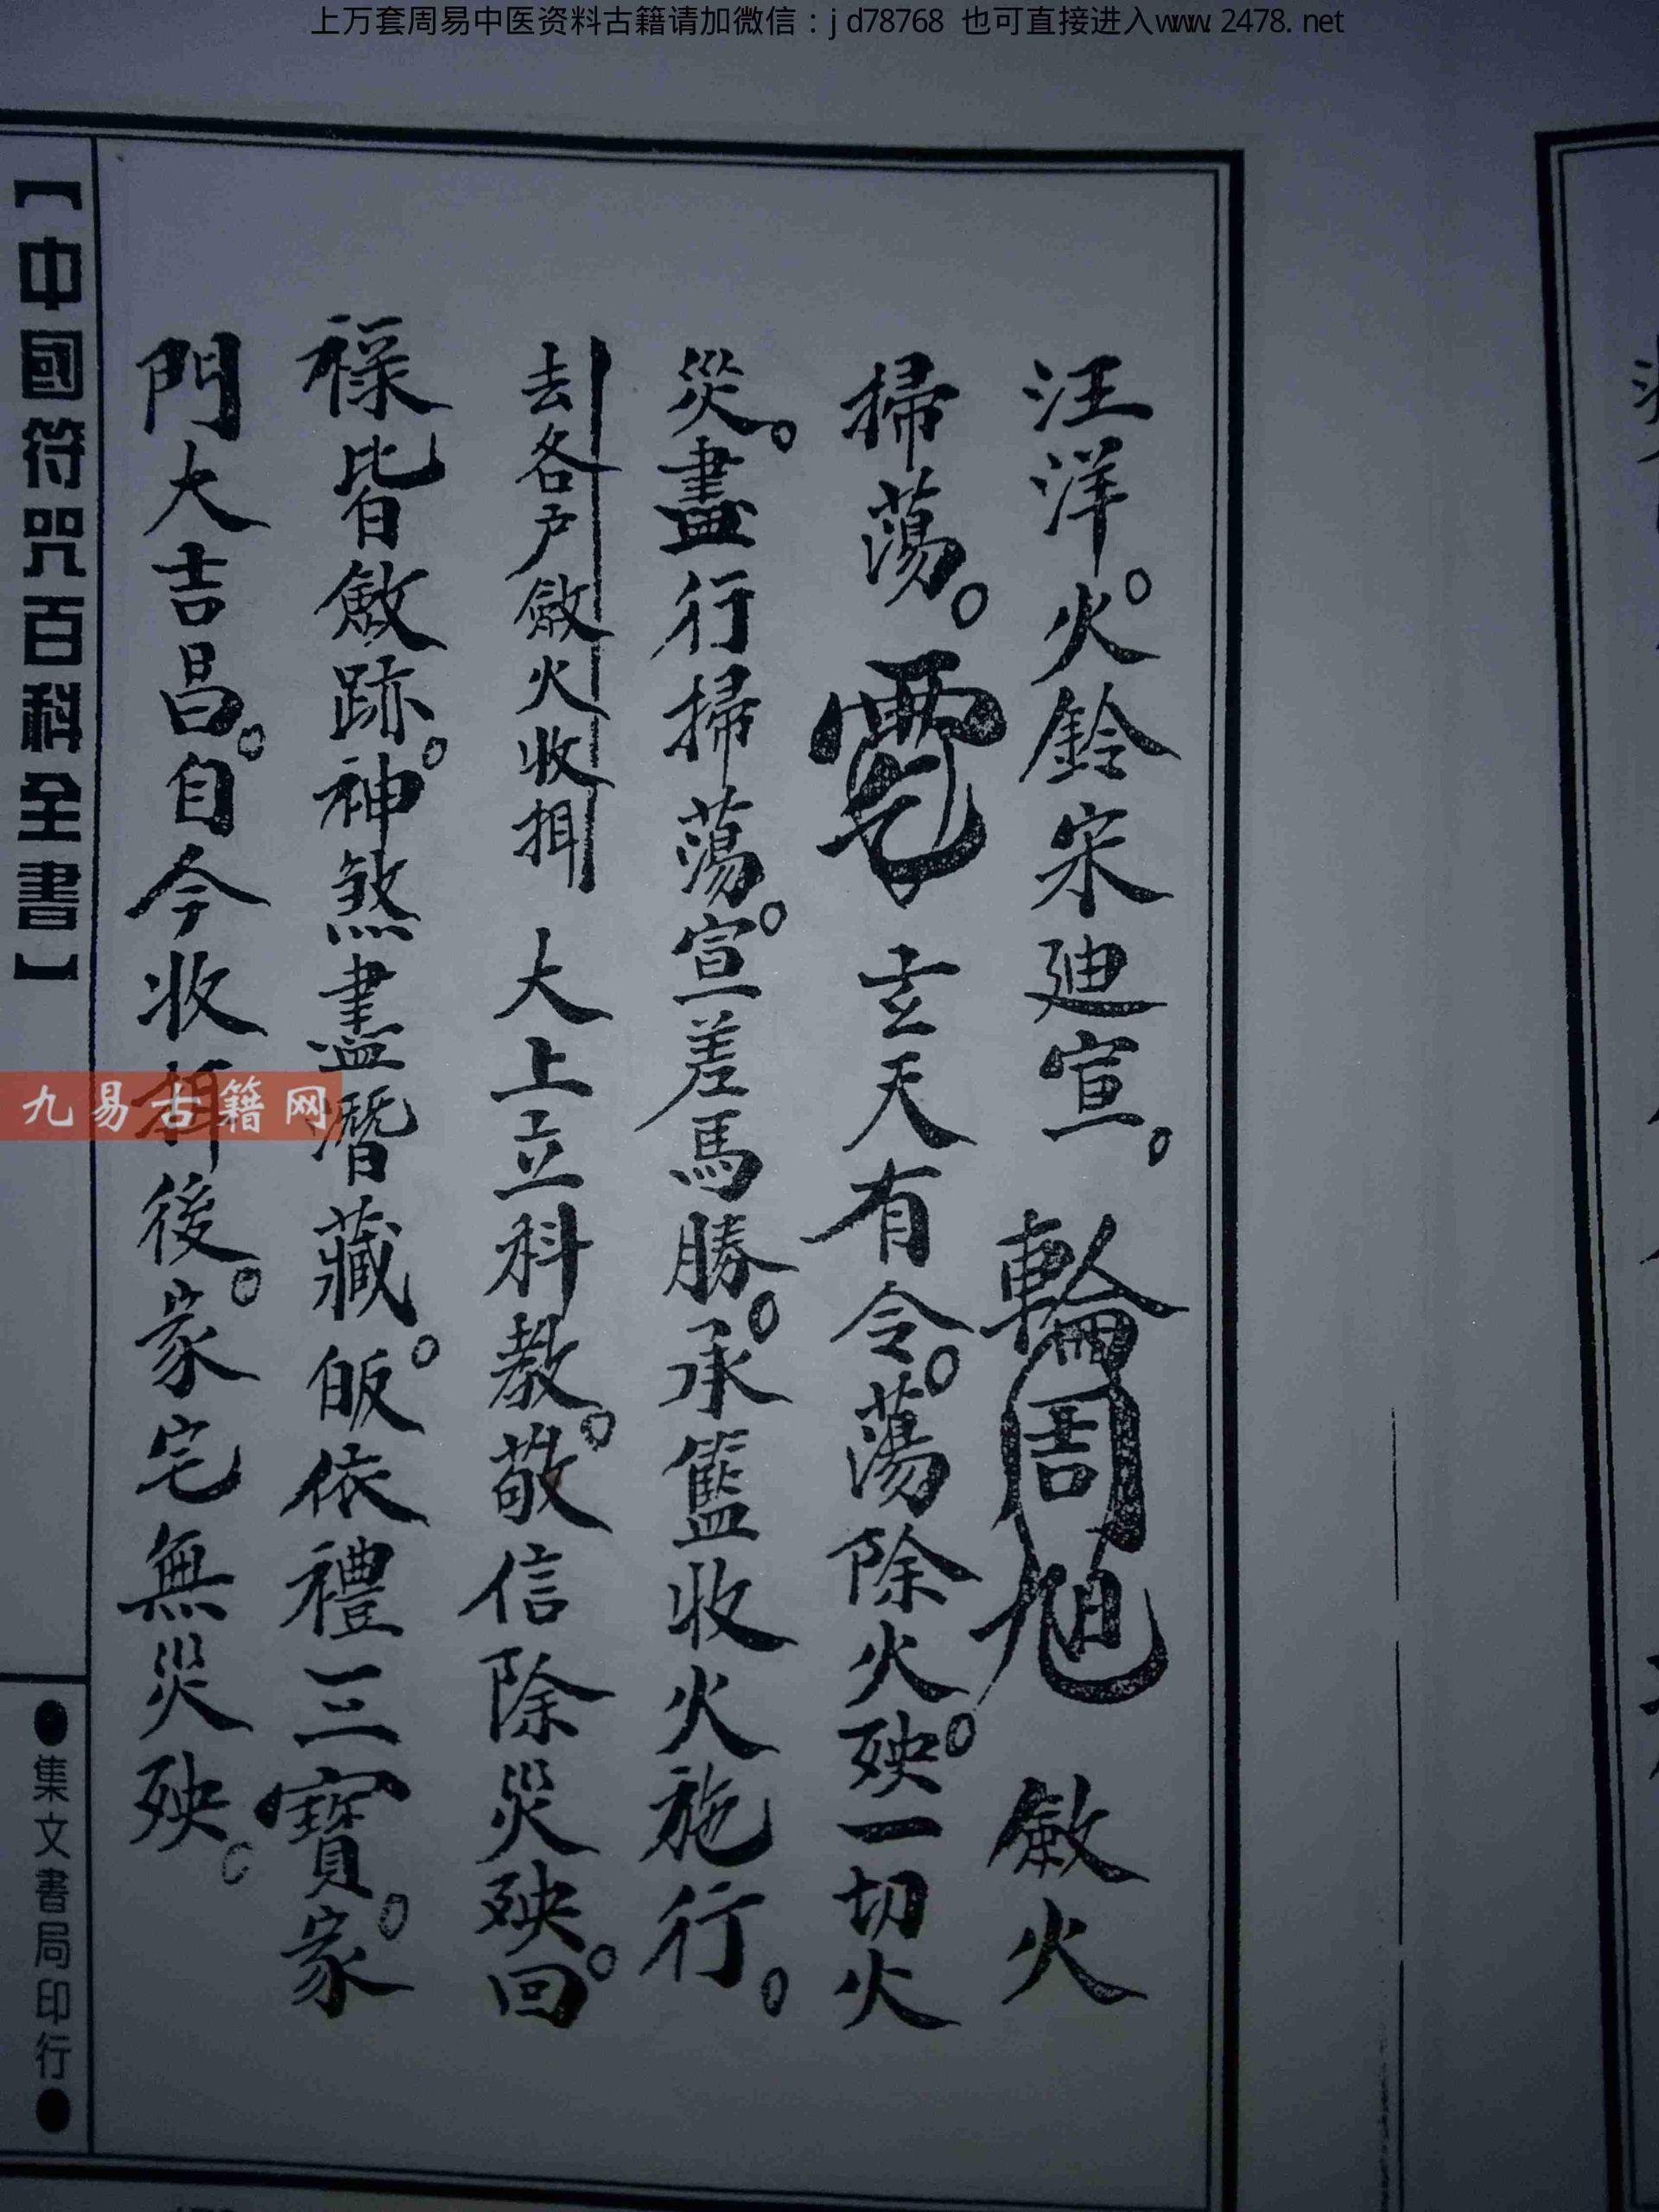 上万套周易中医资料古籍请加微信：jd78768 也可直接进入www.2478.net
汪洋。火鈴宋廸宣。輪周旭 斂火
掃蕩。 玄天有令。蕩除火殃。一切火
災。盡行掃蕩。宣差馬勝。承籃收火施行。
去各户斂火收揖 大上立科教。敬信除災殃。回
祿皆斂跡。神煞盡潛藏。皈依禮三寶。家
門大吉昌。自今收後。家宅無災殃。
【中國符咒百科全書】
●集文書局印行●
九易古籍网